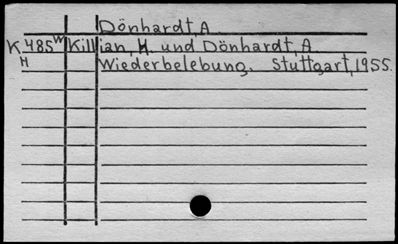 Dönhardt, A
K 485 W Killian, H. und Dönhardt, A
H Wiederbelebung. Stuttgart, 1955.